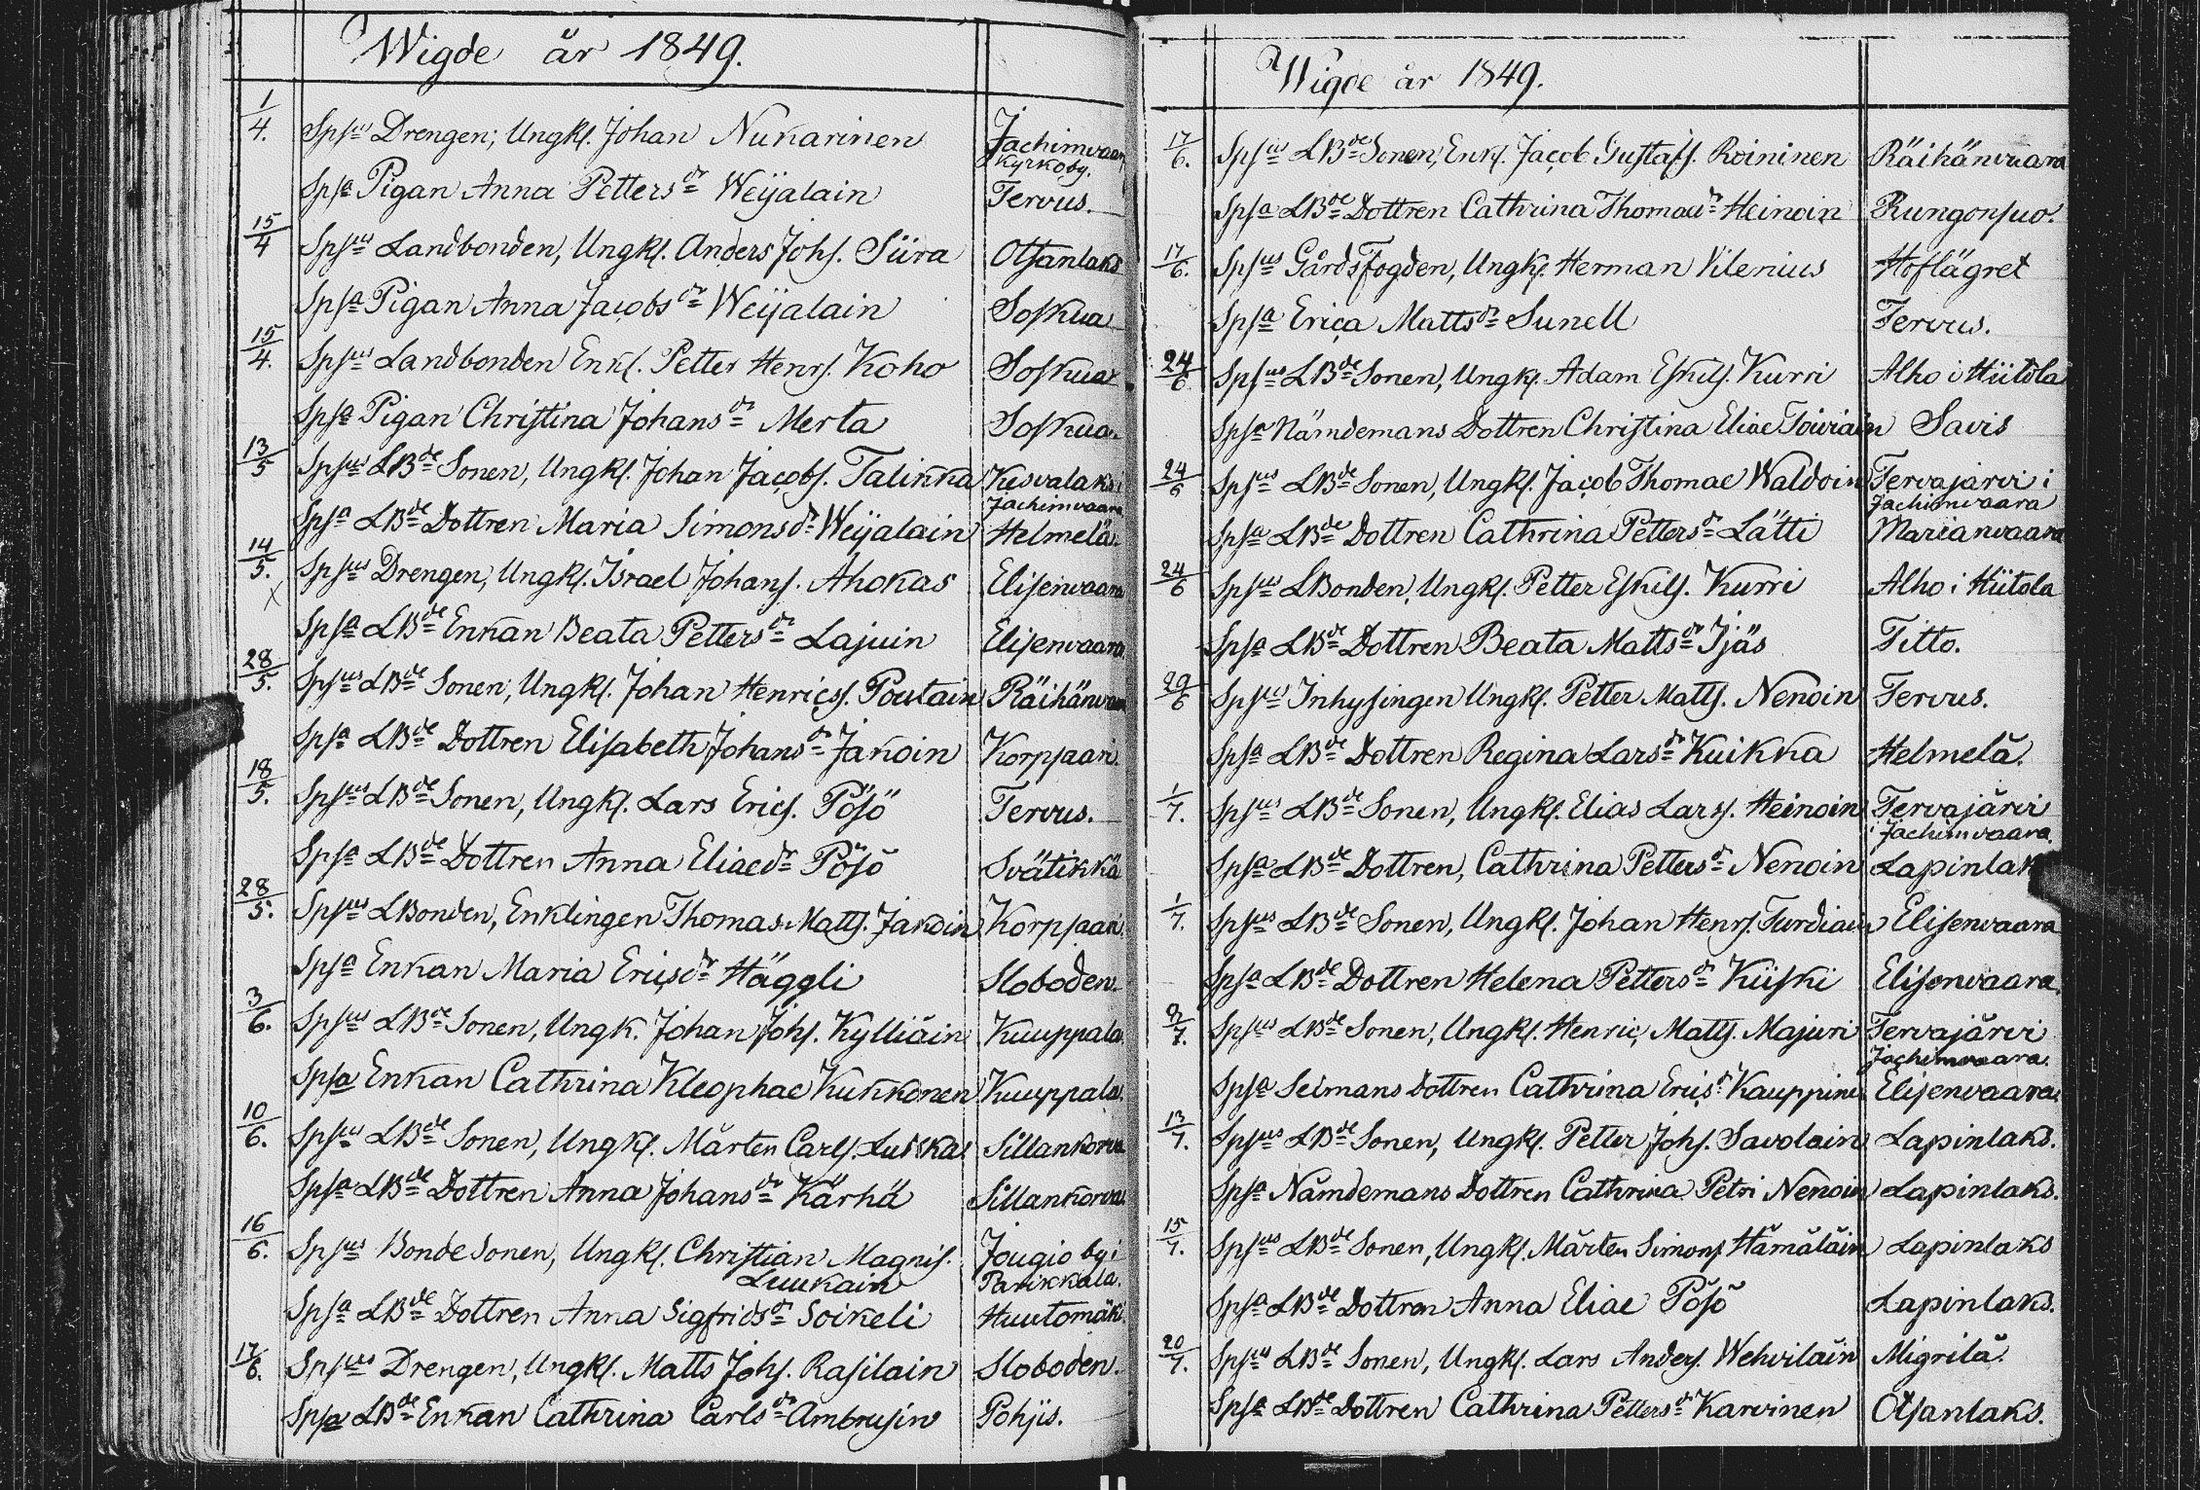 Wigde år 1849.
1/4. Spsus Drengen, Ungkl. Johan Nukarinen Jachimvaara Kyrkoby.
Spsa Pigan Anna Pettersdr Weijalain Tervus.
15/4 Spsus Landbonden, Ungkl. Anders Johs. Siira Otsanlaks
Spsa Pigan Anna Jacobsdr Weijalain Soskua
15/4. Spsus Landbonden Enkl. Petter Henrs. Koho Soskua
Spsa Pigan Christina Johansdr Merta Soskua.
13/5 Spsus LBde Sonen, Ungkl. Johan Jacobs. Talikka Kesvalaks i Jachimvaara
Spsa LBde Dottren Maria Simonsdr Weijalain Helmelä.
14/5. Spsus Drengen, Ungkl. Israel Johans. Ahokas Elisenvaara
x
Spsa LBde Enkan Beata Pettersdr Lajuin Elisenvaara.
28/5. Spsus LBde Sonen, Ungkl. Johan Henrics. Poutain Räihänvaara
Spsa LBde Dottren Elisabeth Johansdr Jakoin Korpsaari.
18/5. Spsus LBde Sonen, Ungkl. Lars Erics. Pösö Tervus.
Spsa LBde Dottren Anna Eliaedr Pösö Svätikkä
28/5. Spsus LBonden, Enklingen Thomas Matts. Jakoin Korpsaari.
Spsa Enkan Maria Ericsdr Häggli Sloboden.
3/6. Spsus LBde Sonen, Ungk. Johan Johs. Kylliäin Kuuppala.
Spsa Enkan Cathrina Kleophae Kukkonen Kuuppala.
10/6. Spsus LBde Sonen, Ungkl. Mårten Carls. Luskka Sillankorva
Spsa LBde Dottren Anna Johansdr Kärhä Sillankorva.
16/6. Spsus Bonde Sonen, Ungkl. Christian Magnis. Luukain Jougio by i Parikkala.
Spsa LBde Dottren Anna Sigfridsdr Soikeli Huutomäki.
17/6. Spsus Drengen, Ungkl. Matts Johs. Rasilain Sloboden.
Spsa LBde Enkan Cathrina Carlsdr Ambrusin Pohjis.
Wigde år 1849.
17/6. Spsus LBde Sonen, Enkl. Jacob Gustafs. Roininen Räihänvaara
Spsa LBde Dottren Cathrina Thomaedr Heinoin Rungonsuo.
17/6. Spsus GårdsFogden, Ungkl. Herman Vilenius Hoflägret
Spsa Erica Mattsdr Sunell Tervus.
24/6 Spsus LBde Sonen, Ungkl. Adam Eskils. Kurri Alho i Hiitola
Spsa Nämdemans Dottren Christina Eliae Toiviain Savis
24/6 Spsus LBde Sonen, Ungkl. Jacob Thomae Waldoin Tervajärvi i Jachimvaara
Spsa LBde Dottren Cathrina Pettersdr Lätti Marianvaara
24/6 Spsus LBonden, Ungkl. Petter Eskils. Kurri Alho i Hiitola
Spsa LBde Dottren Beata Mattsdr Ijäs Titto.
29/6 Spsus Inhysingen Ungkl. Petter Matts. Nenoin Tervus.
Spsa LBde Dottren Regina Larsdr Kuikka Helmelä.
1/7. Spsus LBde Sonen, Ungkl. Elias Larss. Heinoin Tervajärvi i Jachimvaara.
Spsa LBde Dottren, Cathrina Pettersdr Nenoin Lapinlaks
1/7. Spsus LBde Sonen, Ungkl. Johan Henrs. Turdiain Elisenvaara
Spsa LBde Dottren Helena Pettersdr Kiiski Elisenvaara.
9/7. Spsus LBde Sonen, Ungkl. Henric Matts. Majuri Tervajärvi Jachimvaara.
Spsa Seimans Dottren Cathrina Ericsdr Kauppine Elisenvaara
13/7. Spsus LBde Sonen, Ungkl. Petter Johs. Savolain Lapinlaks.
Spsa Nämdemans Dottren Cathrina Petri Nenoin Lapinlaks.
15/7. Spsus LBde Sonen, Ungkl. Mårten Simons Hämäläin Lapinlaks
Spsa LBde Dottren Anna Eliae Pösö Lapinlaks.
20/7. Spsus LBde Sonen, Ungkl. Lars Anders. Wehviläin Migrilä.
Spsa LBde Dottren Cathrina Pettersdr Karvinen Otsanlaks.